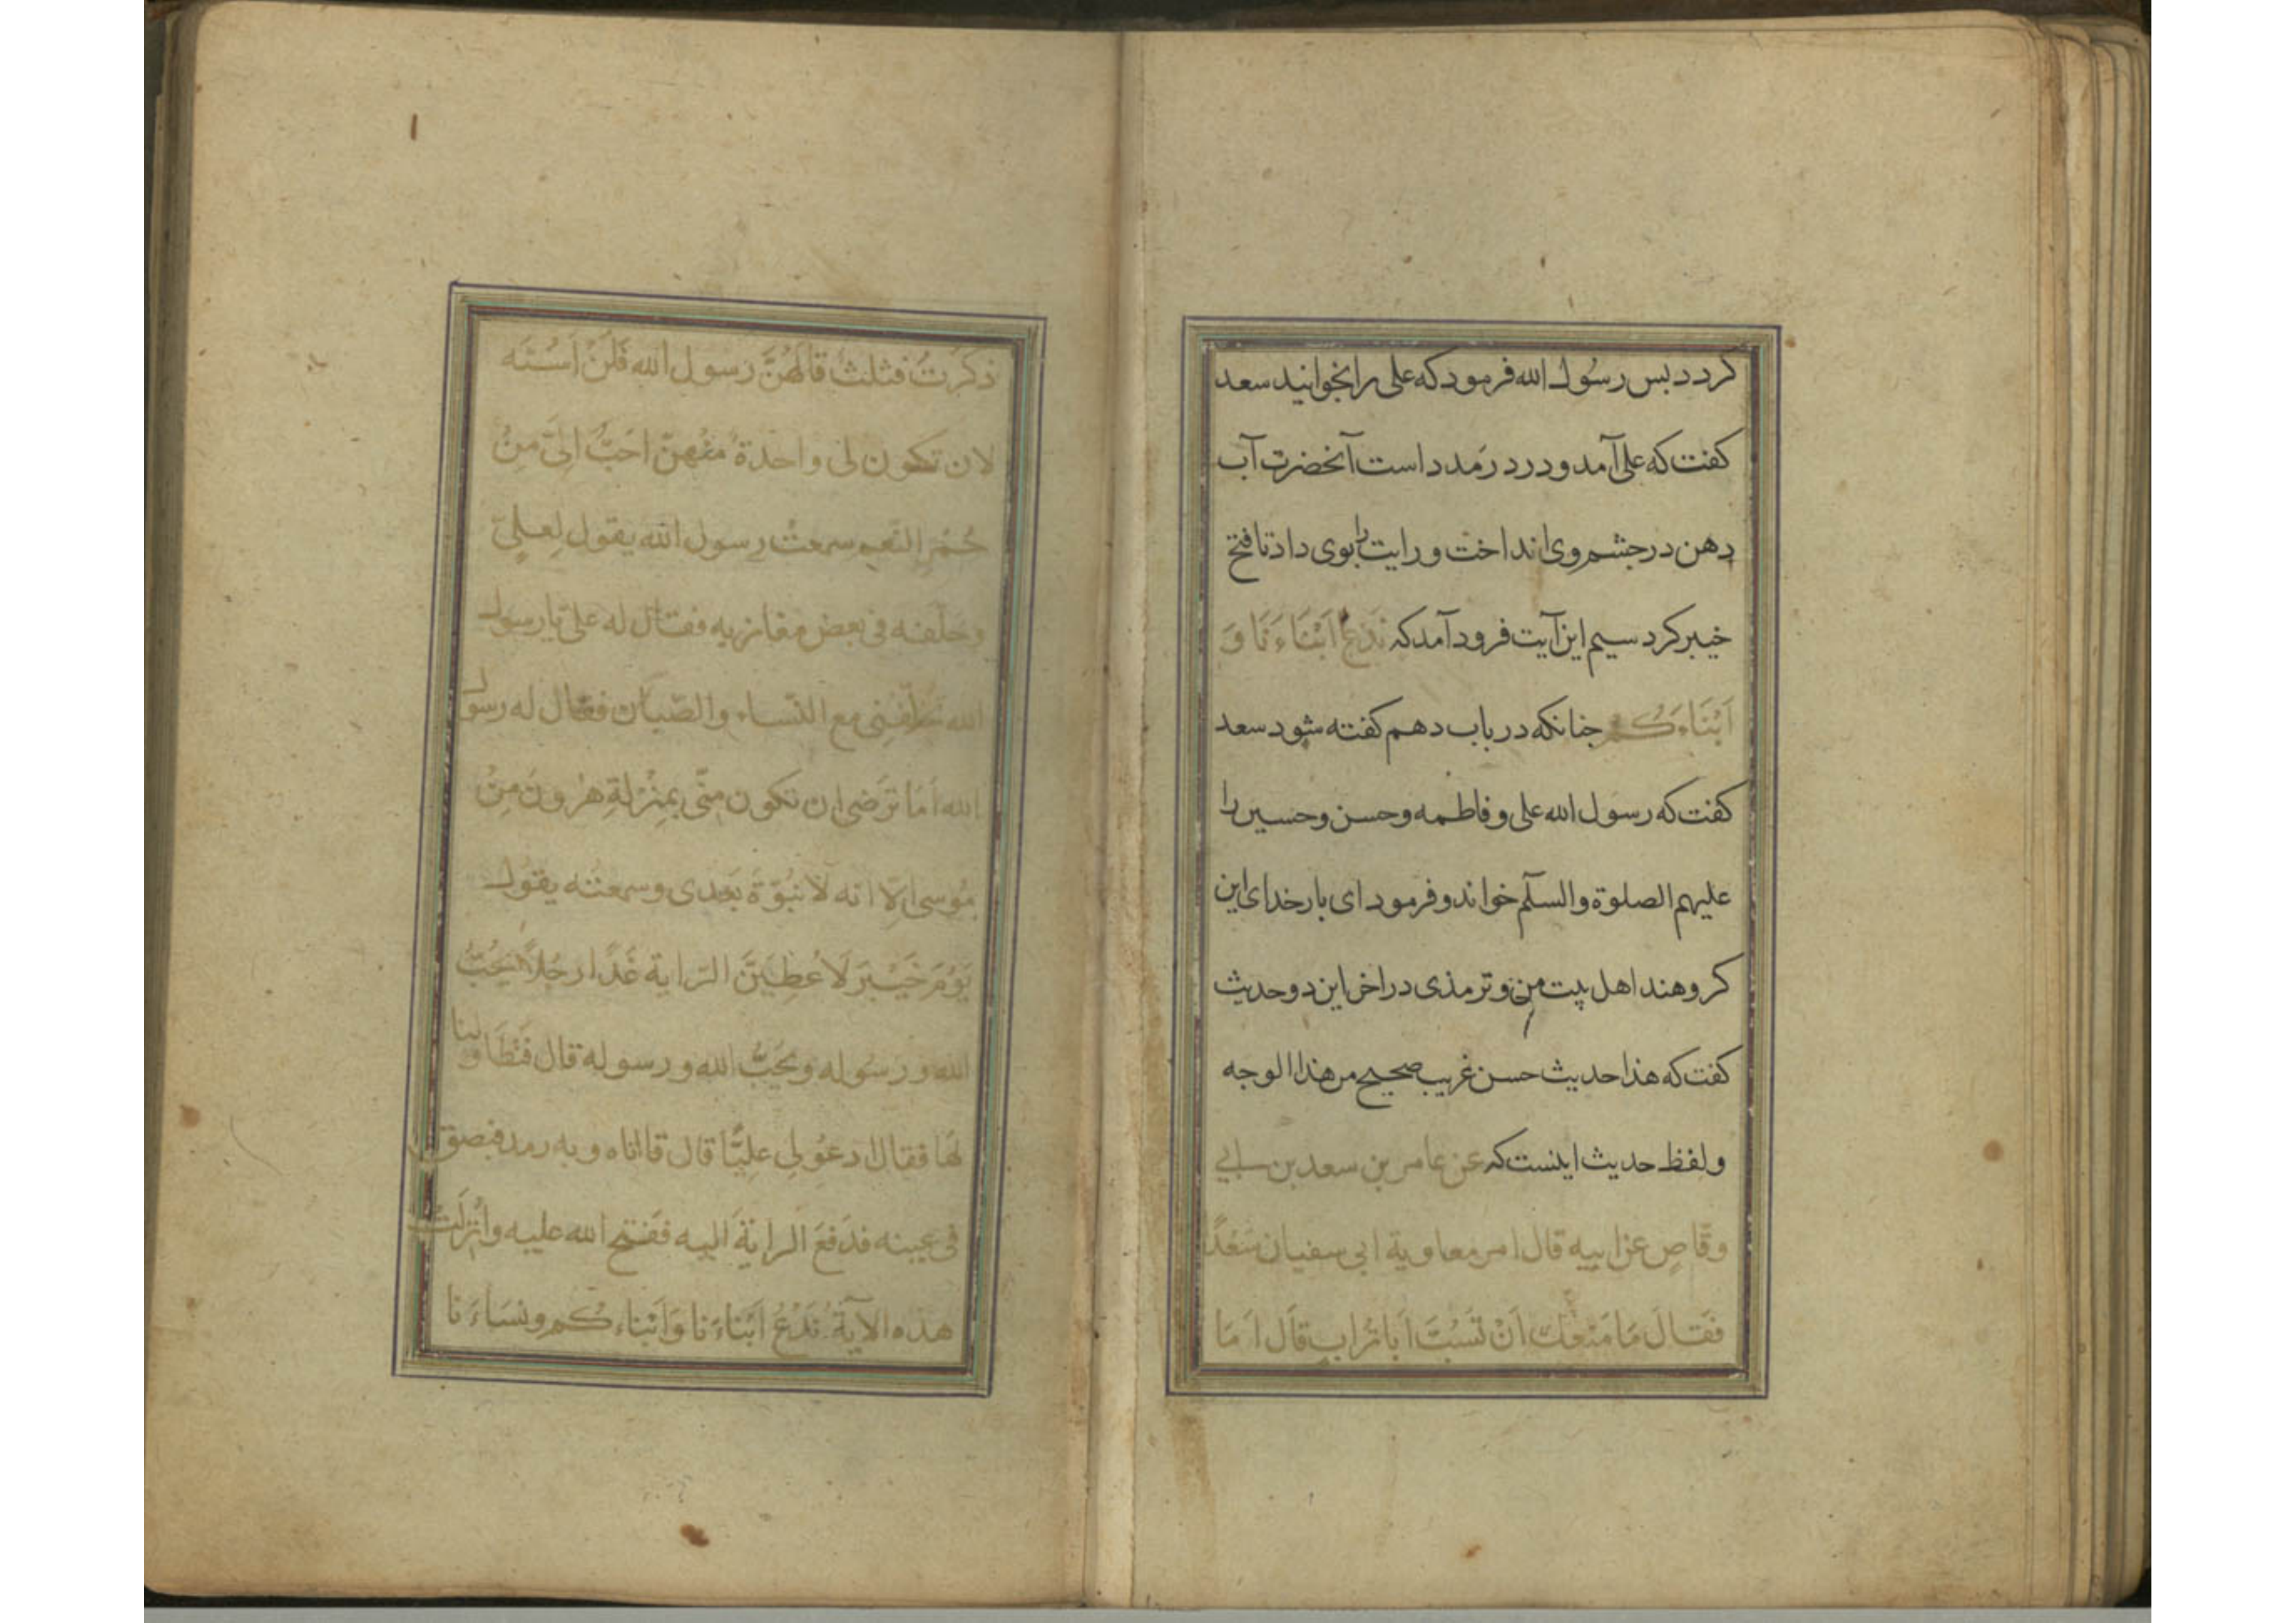 کردد بس رسول الله فرمود که علی را بخوانید سعد
کفت که علی آمد و درد رمد داست آنحضرت آب
دهن در جشم وی انداخت و رایت را بوی داد تا فتح
خیبر کرد سیم این آیت فرود آمد که نَدْعُ اَبْنَاءَنَا وَ
اَبْنَاءَكُم جنانکه در باب دهم کفته شود سعد
کفت که رسول الله علی و فاطمه و حسن و حسین را
علیهم الصلوة والسلم خواند و فرمود ای بار خدای این
کروهند اهل بیت من و ترمذی در اخر این دو حدیث
کفت که هذا حدیث حسن غریب صحیح من هذا الوجه
و لفظ حدیث اینست که عن عامر بن سعد بن ابی
وقّاصٍ عن ابیه قال امر معاویة ابی سفیان سَعْدًا
فَقَالَ مَا مَنَعَكَ اَنْ تَسُبَّ اَبَا تُرابٍ قَالَ اَمَا
ذَكَرْتُ فثلثٌ قالَهُنَّ رسول الله فَلَنْ اَسُبَّه
لان تكون لی واحدةٌ منْهنّ احَبُّ اِلیَّ مِنْ
حُمْرِ النّعم سمعتُ رسول الله یقول لِعلیٍّ
وخلفه فی بعض مغازیه فقال له علیّ یا رسول
الله تخلّفنی مع النّساء والصّبیان فقال له رسول
الله اَمَا تَرضی ان تكون منّی بمنْزلةِ هٰرونَ مِنْ
مُوسی اِلّا انه لَا نُبوّةَ بَعْدی وسمعته یقول
یَوْمَ خَیْبَرَ لَاُعْطِیَنَّ الرّایة غَدًا رَجُلاً یُحِبُّ
الله ورسُوله ویُحِبُّ الله ورسوله قال فَتَطَاوَلْنا
لَهَا فقال ادعُو لی علِیًّا قال فاتاه وبه رمد فبصق
فی عینه فدَفَعَ الرایةَ الیه ففتح الله علیه واُنْزِلَتْ
هذه الآیةُ نَدْعُ اَبْنَاءَنا وَاَبْنَاءَكُم ونِسَاءَنا